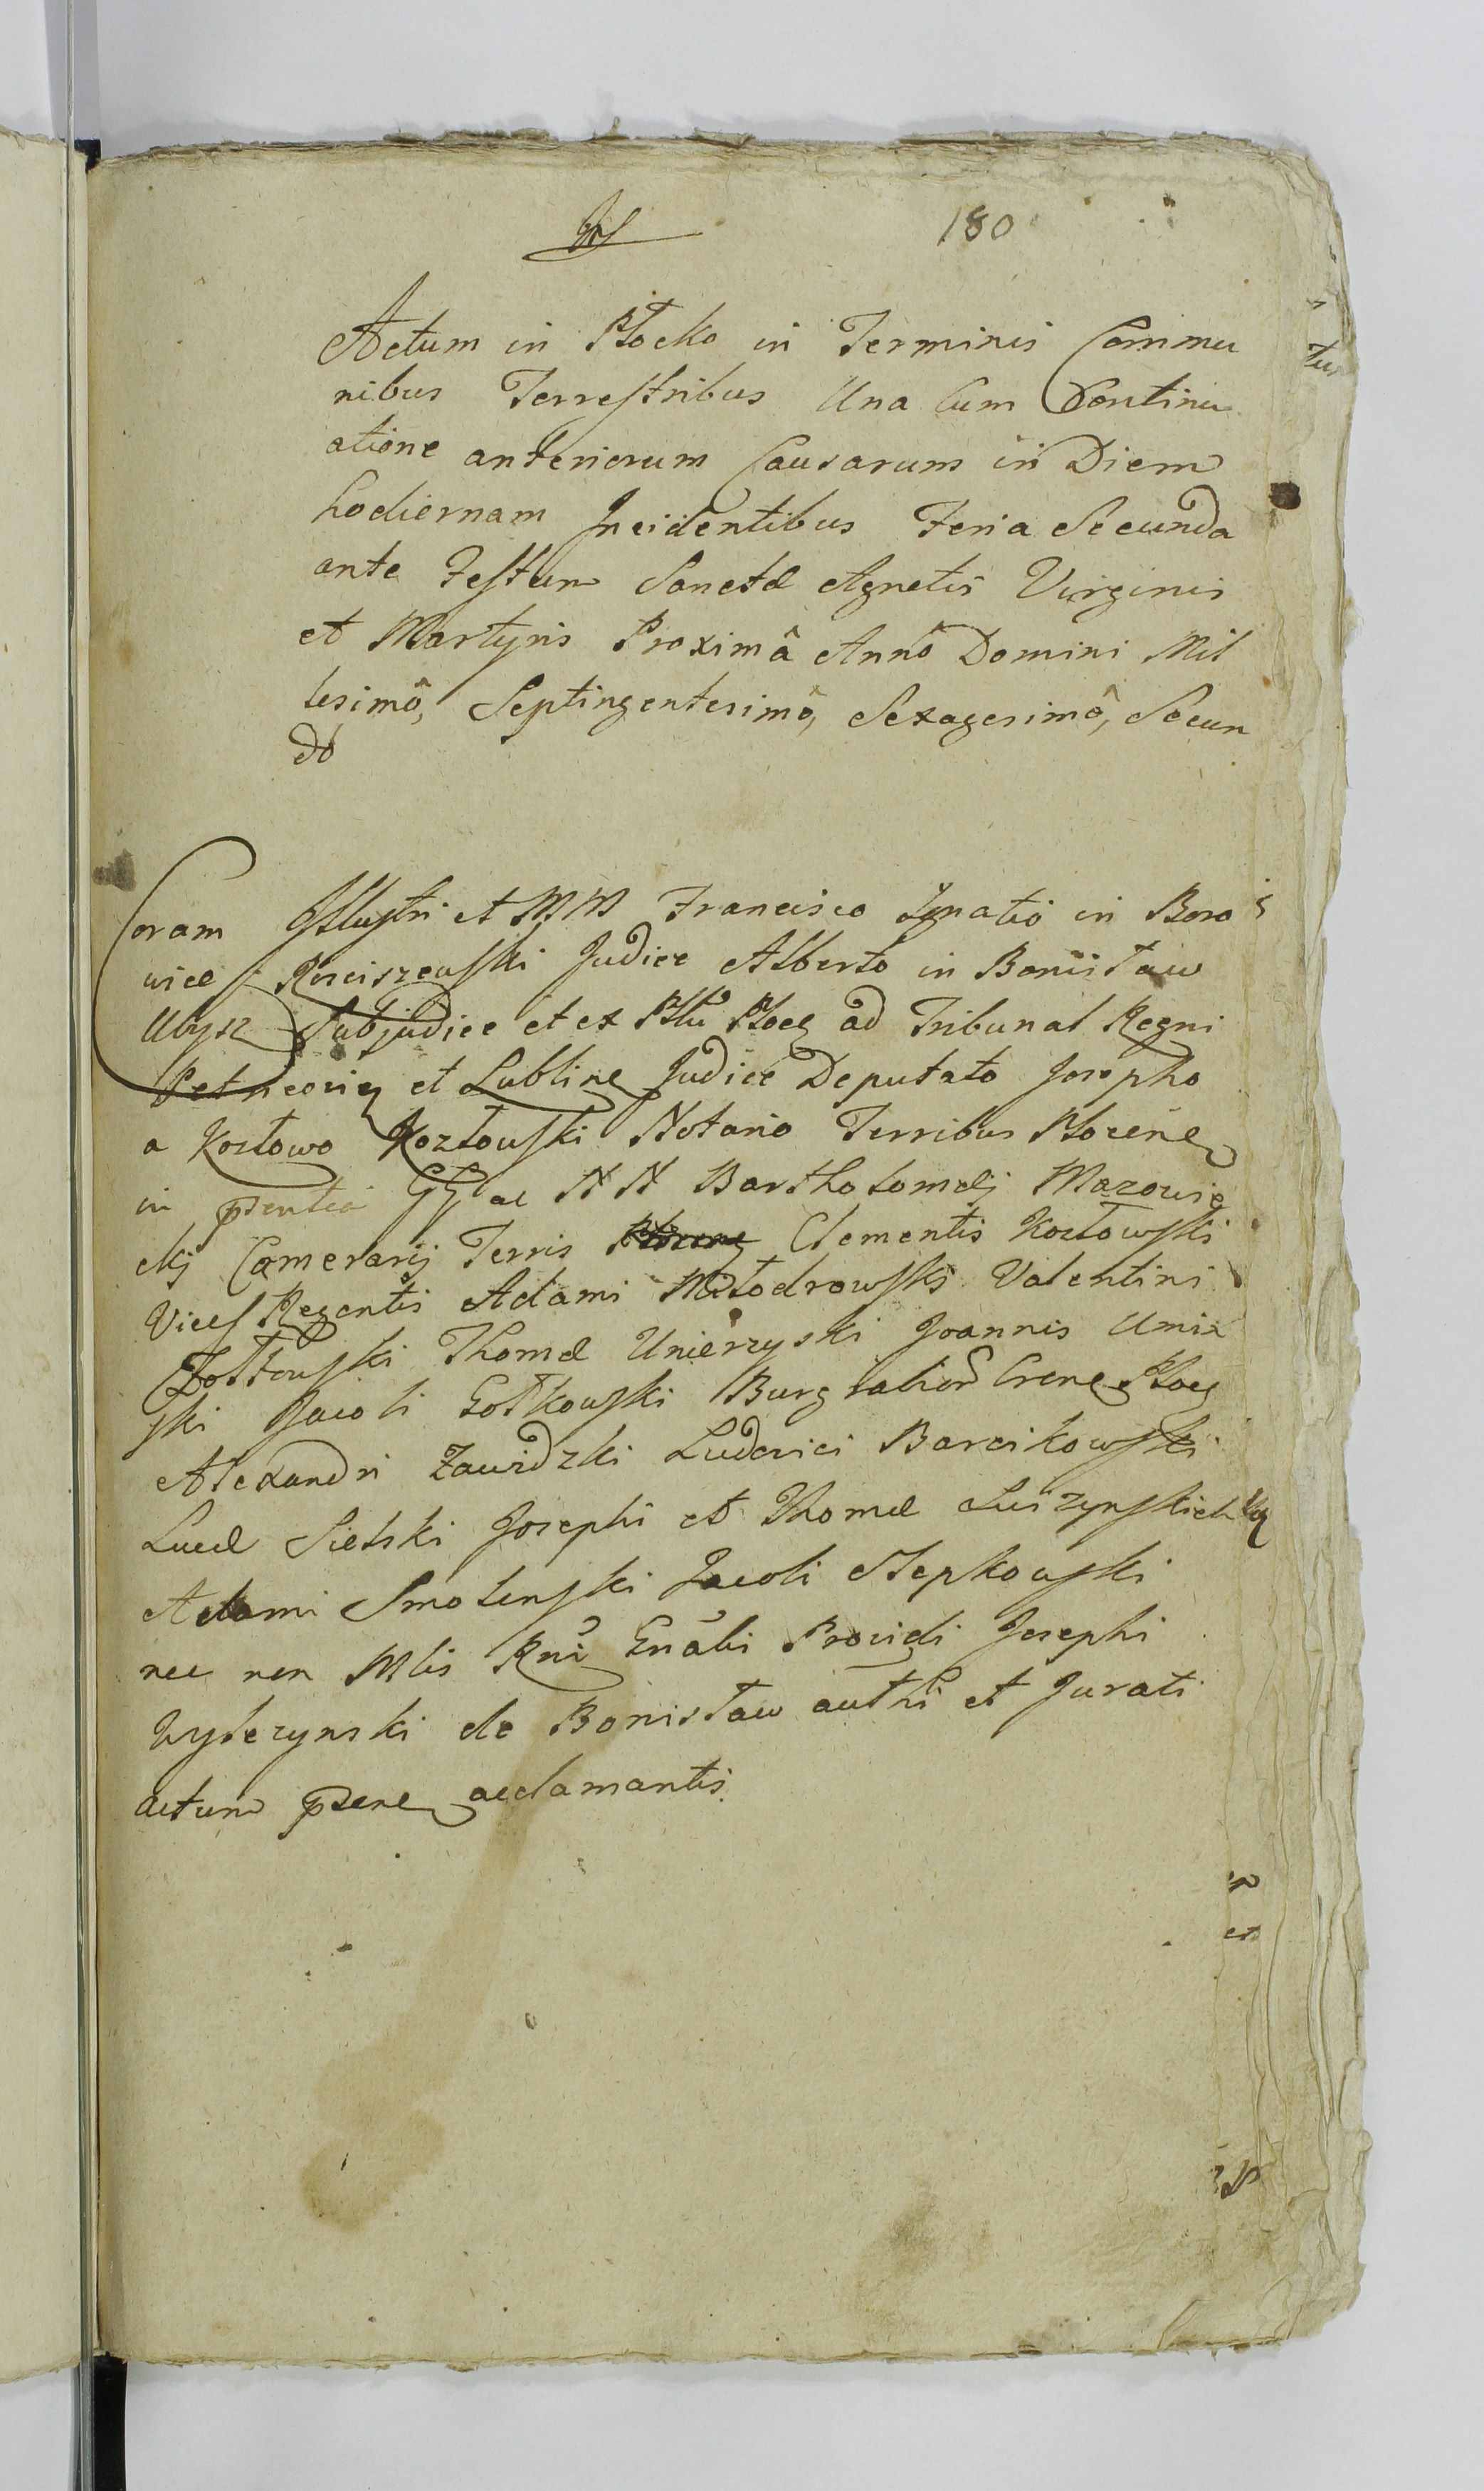 180
Actum in Płocko in Terminis Commu
nibus Terrestribus Una Cum Continu
atione anteriorum Causarum in Diem
hodiernam Incidentibus Feria Secunda
ante Festum Sanctæ Agnetis Virginis
et Martyris Proximâ Annô Domini Mil
lesimô, Septingentesimô, Sexagesimô, Secun
dô
Coram Illustri et MM Francisco Ignatio in Boro
wice Rosciszewski Judice Alberto in Bonisław
Ubysz Subjudice et ex Płtu Płocq ad Tribunal Regni
Petricovieñ et Lubline Judice Deputato Josepho
a Kozłowo Kozłowski Notario Terribus Płocens
in pñtia GG ac NN Bartholomæj Mazowie
ckj Camerarij Terris Clementis Kozłowski
Vices Regentis Adami Młodrowski Valentini
Zołtowski Thomæ Unierzyski Joannis Umin
ski Jacobi Gołkowski Burgrabior Crene Płocq
Alexandri Zawidzki Ludovici Barcikowski
Lucæ Sielski Josephi et Thomæ Suszynskich
Adami Smolenski Jacobi Stepkowski
nec non Mlis Rni Gñalis Providi Josephi
Wyberynski de Bonisław authi et Jurati
actum pñens acclamantis.